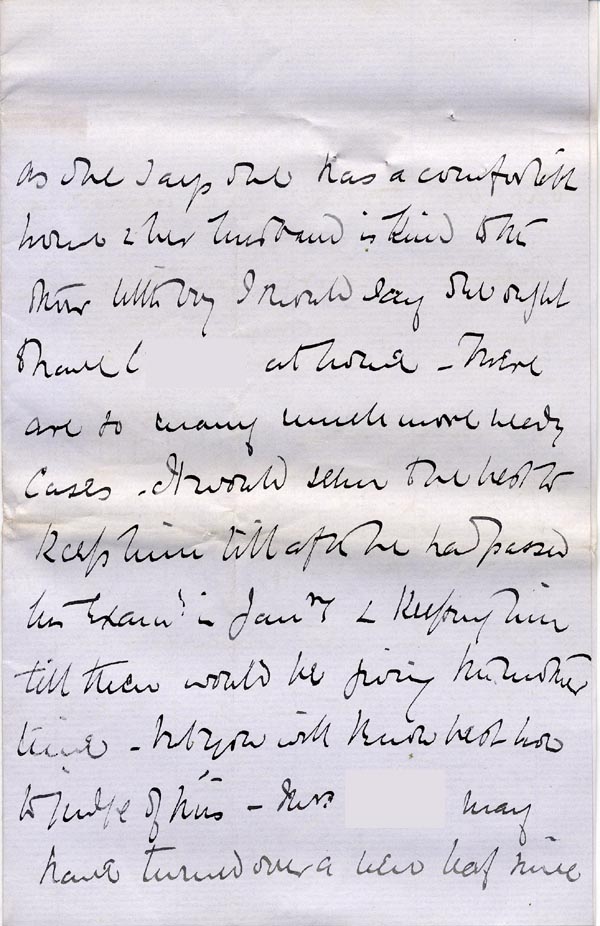 as she says she has a comfortable
home & her husband is kind to the
other little boy I should say she ought
to have C at home - There
are so many much more needy
Cases - It would seem to be best to
keep him till after he had passed
his Exam: in Jan^ry & keeping him
till then would be giving his mother
time - but you will know best how
to judge of this - Mrs may
have turned over a new leaf since